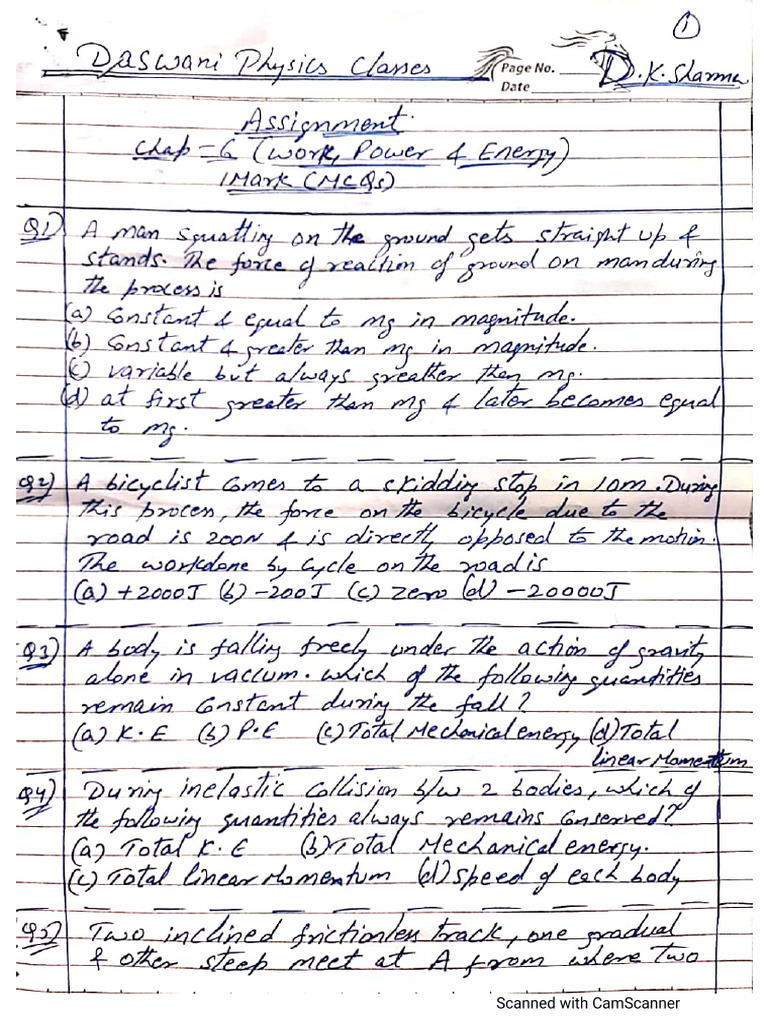 1
Daswani Physics Classes Page No. D.K. Sharma
Date
Assignment
Chap = 6 (Work, Power & Energy)
1 Mark (MCQs)
Q1) A man squatting on the ground gets straight up &
stands. The force of reaction of ground on man during
the process is
(a) Constant & equal to mg in magnitude.
(b) Constant & greater than mg in magnitude.
(c) variable but always greatter than mg.
(d) at first greater than mg & later becomes equal
to mg.
Q2) A bicyclist comes to a skidding stop in 10m. During
this process, the force on the bicycle due to the
road is 200N & is directly opposed to the motion.
The workdone by cycle on the road is
(a) +2000J (b) -200J (c) zero (d) -20000J
Q3) A body is falling freely under the action of gravity
alone in vaccum. which of the following quantities
remain Constant during the fall?
(a) K.E (b) P.E (c) Total Mechanical energy (d) Total
linear Momentum
Q4) During inelastic Collision b/w 2 bodies, which of
the following quantities always remains Conserved?
(a) Total K.E (b) Total Mechanical energy.
(c) Total linear Momentum (d) speed of each body
Q5) Two inclined frictionless track, one gradual
& other steep meet at A from where Two
Scanned with CamScanner